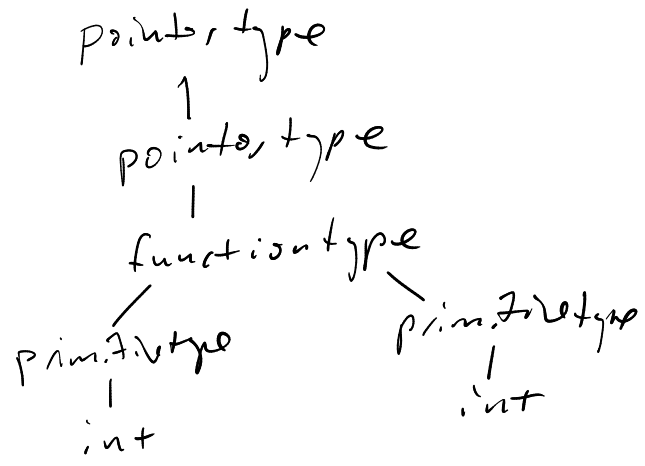 pointer type
pointer type
function type
primitivetype
primitivetype
int
int